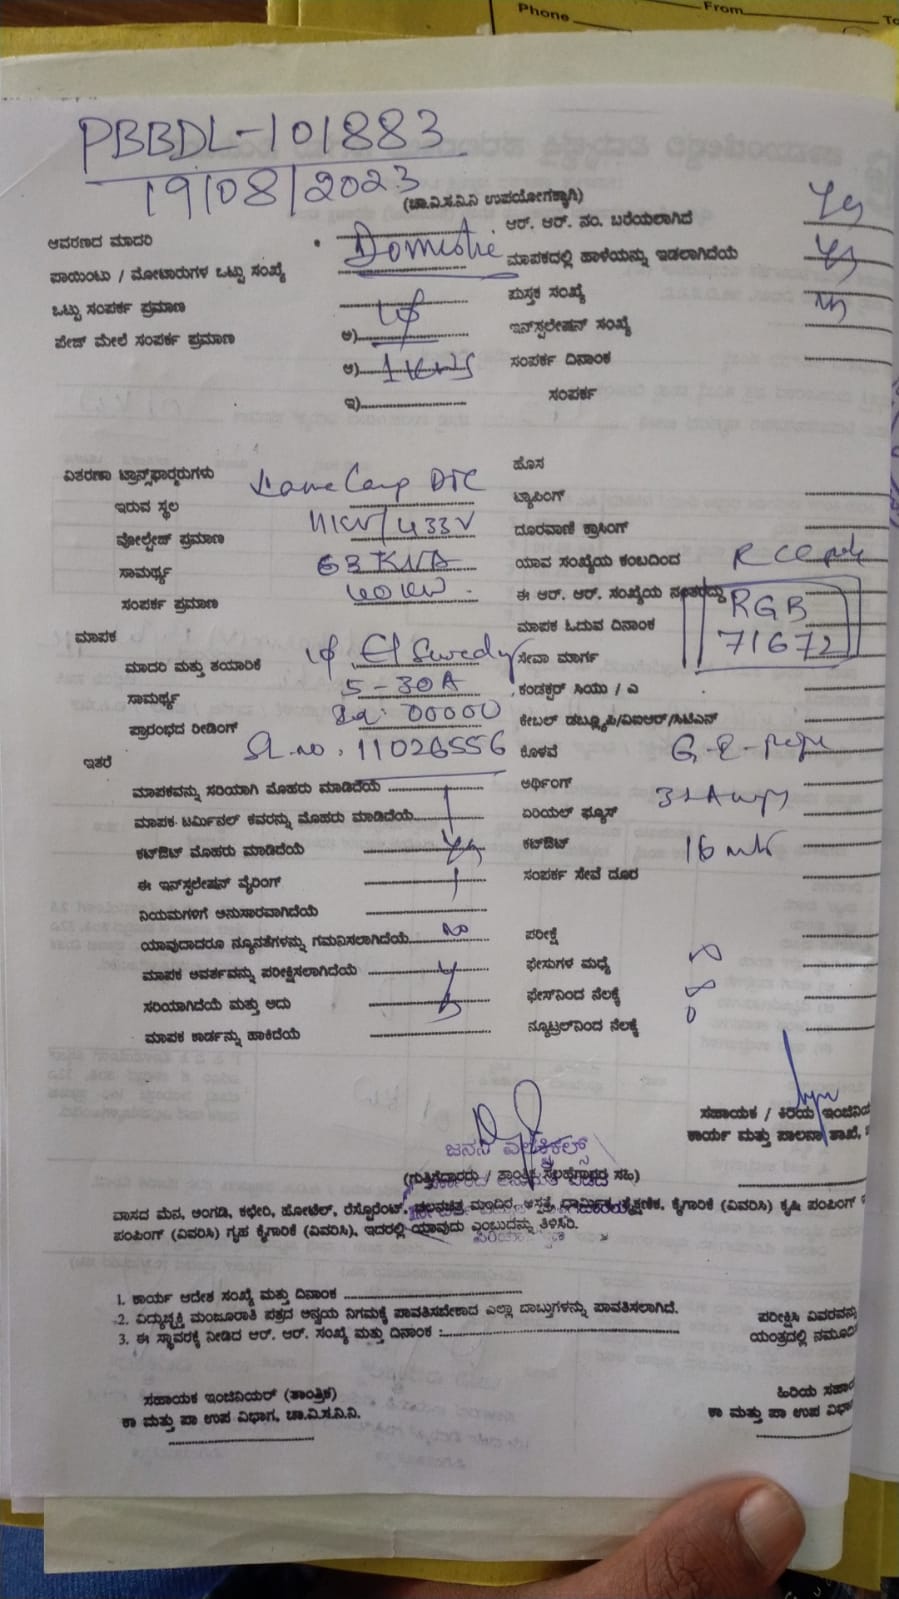 Phone
From
To
PBBDL-101883
19/08/2023
(ಚಾ.ವಿ.ಸ.ನಿ.ನಿ ಉಪಯೋಗಕ್ಕಾಗಿ)
ಆವರಣದ ಮಾದರಿ Domestic
ಆರ್. ಆರ್. ನಂ. ಬರೆಯಲಾಗಿದೆ Yes
ಪಾಯಿಂಟು / ಮೋಟಾರುಗಳ ಒಟ್ಟು ಸಂಖ್ಯೆ
ಮಾಪಕದಲ್ಲಿ ಹಾಳೆಯನ್ನು ಇಡಲಾಗಿದೆಯೆ Yes
ಒಟ್ಟು ಸಂಪರ್ಕ ಪ್ರಮಾಣ
ಪುಸ್ತಕ ಸಂಖ್ಯೆ
ಪೇಜ್ ಮೇಲೆ ಸಂಪರ್ಕ ಪ್ರಮಾಣ ಅ) 1φ
ಇನ್‌ಸ್ಟಲೇಷನ್ ಸಂಖ್ಯೆ
ಆ)
ಸಂಪರ್ಕ ದಿನಾಂಕ
ಇ)
ಸಂಪರ್ಕ
ವಿತರಣಾ ಟ್ರಾನ್ಸ್‌ಫಾರ್ಮರುಗಳು
ಹೊಸ
ಇರುವ ಸ್ಥಲ
ಟ್ಯಾಪಿಂಗ್
ವೋಲ್ಟೇಜ್ ಪ್ರಮಾಣ 11KV/433V
ದೂರವಾಣಿ ಕ್ರಾಸಿಂಗ್
ಸಾಮರ್ಥ್ಯ 63 KVA
ಯಾವ ಸಂಖ್ಯೆಯ ಕಂಬದಿಂದ RCC pole
ಸಂಪರ್ಕ ಪ್ರಮಾಣ 40 KW
ಈ ಆರ್. ಆರ್. ಸಂಖ್ಯೆಯ ನಂತರದ್ದು RGB
71672
ಮಾಪಕ
ಮಾಪಕ ಓದುವ ದಿನಾಂಕ
ಮಾದರಿ ಮತ್ತು ತಯಾರಿಕೆ 1φ El Swedy
ಸೇವಾ ಮಾರ್ಗ
ಸಾಮರ್ಥ್ಯ 5-30A
ಕಂಡಕ್ಟರ್ ಸಿಯು / ಎ
ಪ್ರಾರಂಭದ ರೀಡಿಂಗ್ 00000
ಕೇಬಲ್ ಡಬ್ಲ್ಯೂಪಿ/ವಿಐಆರ್/ಸಿಟಿಎಸ್
ಇತರೆ Sl.no. 11026556
ಕೊಳವೆ
ಮಾಪಕವನ್ನು ಸರಿಯಾಗಿ ಮೊಹರು ಮಾಡಿದೆಯೆ
ಅರ್ಥಿಂಗ್
ಮಾಪಕ ಟರ್ಮಿನಲ್ ಕವರನ್ನು ಮೊಹರು ಮಾಡಿದೆಯೆ
ಏರಿಯಲ್ ಫ್ಯೂಸ್
ಕಟ್‌ಔಟ್ ಮೊಹರು ಮಾಡಿದೆಯೆ Yes
ಕಟ್‌ಔಟ್
ಈ ಇನ್‌ಸ್ಟಲೇಷನ್ ವೈರಿಂಗ್
ಸಂಪರ್ಕ ಸೇವೆ ದೂರ
ನಿಯಮಗಳಿಗೆ ಅನುಸಾರವಾಗಿದೆಯೆ
ಯಾವುದಾದರೂ ನ್ಯೂನತೆಗಳನ್ನು ಗಮನಿಸಲಾಗಿದೆಯೆ No
ಪರೀಕ್ಷೆ
ಮಾಪಕ ಆವರ್ತವನ್ನು ಪರೀಕ್ಷಿಸಲಾಗಿದೆಯೆ
ಫೇಸುಗಳ ಮಧ್ಯೆ ∞
ಸರಿಯಾಗಿದೆಯೆ ಮತ್ತು ಅದು
ಫೇಸ್‌ನಿಂದ ನೆಲಕ್ಕೆ ∞
ಮಾಪಕ ಕಾರ್ಡನ್ನು ಹಾಕಿದೆಯೆ
ನ್ಯೂಟ್ರಲ್‌ನಿಂದ ನೆಲಕ್ಕೆ 0
ಸಹಾಯಕ / ಕಿರಿಯ ಇಂಜಿನಿಯ
ಕಾರ್ಯ ಮತ್ತು ಪಾಲನಾ ಶಾಖೆ,
ಜನನಿ ಎಲೆಕ್ಟ್ರಿಕಲ್ಸ್
(ಗುತ್ತಿಗೆದಾರರು / ತಾಂತ್ರಿಕ ಸಲಹೆಗಾರರ ಸಹಿ)
ವಾಸದ ಮನೆ, ಅಂಗಡಿ, ಕಛೇರಿ, ಹೋಟೆಲ್, ರೆಸ್ಟೊರೆಂಟ್, ಚಲನಚಿತ್ರ ಮಂದಿರ, ಆಸ್ಪತ್ರೆ, ಧಾರ್ಮಿಕ, ಶೈಕ್ಷಣಿಕ, ಕೈಗಾರಿಕೆ (ವಿವರಿಸಿ) ಕೃಷಿ ಪಂಪಿಂಗ್
ಪಂಪಿಂಗ್ (ವಿವರಿಸಿ) ಗೃಹ ಕೈಗಾರಿಕೆ (ವಿವರಿಸಿ), ಇದರಲ್ಲಿ ಯಾವುದು ಎಂಬುದನ್ನು ತಿಳಿಸಿರಿ.
1. ಕಾರ್ಯ ಆದೇಶ ಸಂಖ್ಯೆ ಮತ್ತು ದಿನಾಂಕ
2. ವಿದ್ಯುಚ್ಛಕ್ತಿ ಮಂಜೂರಾತಿ ಪತ್ರದ ಅನ್ವಯ ನಿಗಮಕ್ಕೆ ಪಾವತಿಸಬೇಕಾದ ಎಲ್ಲಾ ಬಾಬ್ತುಗಳನ್ನು ಪಾವತಿಸಲಾಗಿದೆ.
ಪರೀಕ್ಷಿಸಿ ವಿವರವನ್ನು
3. ಈ ಸ್ಥಾವರಕ್ಕೆ ನೀಡಿದ ಆರ್. ಆರ್. ಸಂಖ್ಯೆ ಮತ್ತು ದಿನಾಂಕ :
ಯಂತ್ರದಲ್ಲಿ ನಮೂದಿ
ಸಹಾಯಕ ಇಂಜಿನಿಯರ್ (ತಾಂತ್ರಿಕ)
ಹಿರಿಯ ಸಹಾ
ಕಾ ಮತ್ತು ಪಾ ಉಪ ವಿಭಾಗ, ಚಾ.ವಿ.ಸ.ನಿ.ನಿ.
ಕಾ ಮತ್ತು ಪಾ ಉಪ ವಿಭಾ